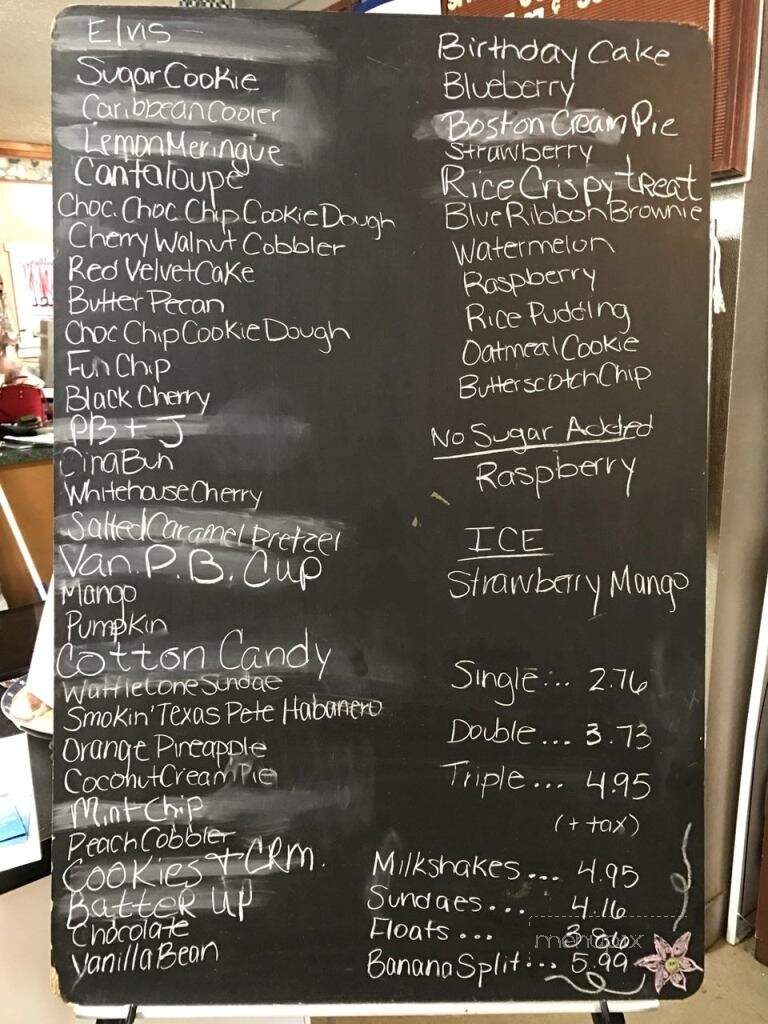 Elvis
Sugar Cookie
Caribbean Cooler
Lemon Meringue
Cantaloupe
Choc. Choc Chip Cookie Dough
Cherry Walnut Cobbler
Red Velvet Cake
Butter Pecan
Choc Chip Cookie Dough
Fun Chip
Black Cherry
PB + J
CinaBun
Whitehouse Cherry
Salted Caramel Pretzel
Van. P.B. Cup
Mango
Pumpkin
Cotton Candy
Waffle Cone Sundae
Smokin' Texas Pete Habanero
Orange Pineapple
Coconut Cream Pie
Mint Chip
Peach Cobbler
Cookies + CRM.
Batter Up
Chocolate
Vanilla Bean
Birthday Cake
Blueberry
Boston Cream Pie
Strawberry
Rice Crispy treat
Blue Ribbon Brownie
Watermelon
Raspberry
Rice Pudding
Oatmeal Cookie
Butterscotch Chip
No Sugar Added
Raspberry
ICE
Strawberry Mango
Single... 2.76
Double... 3.73
Triple... 4.95
(+ tax)
Milkshakes... 4.95
Sundaes... 4.16
Floats...
Banana Split... 5.99
menupix